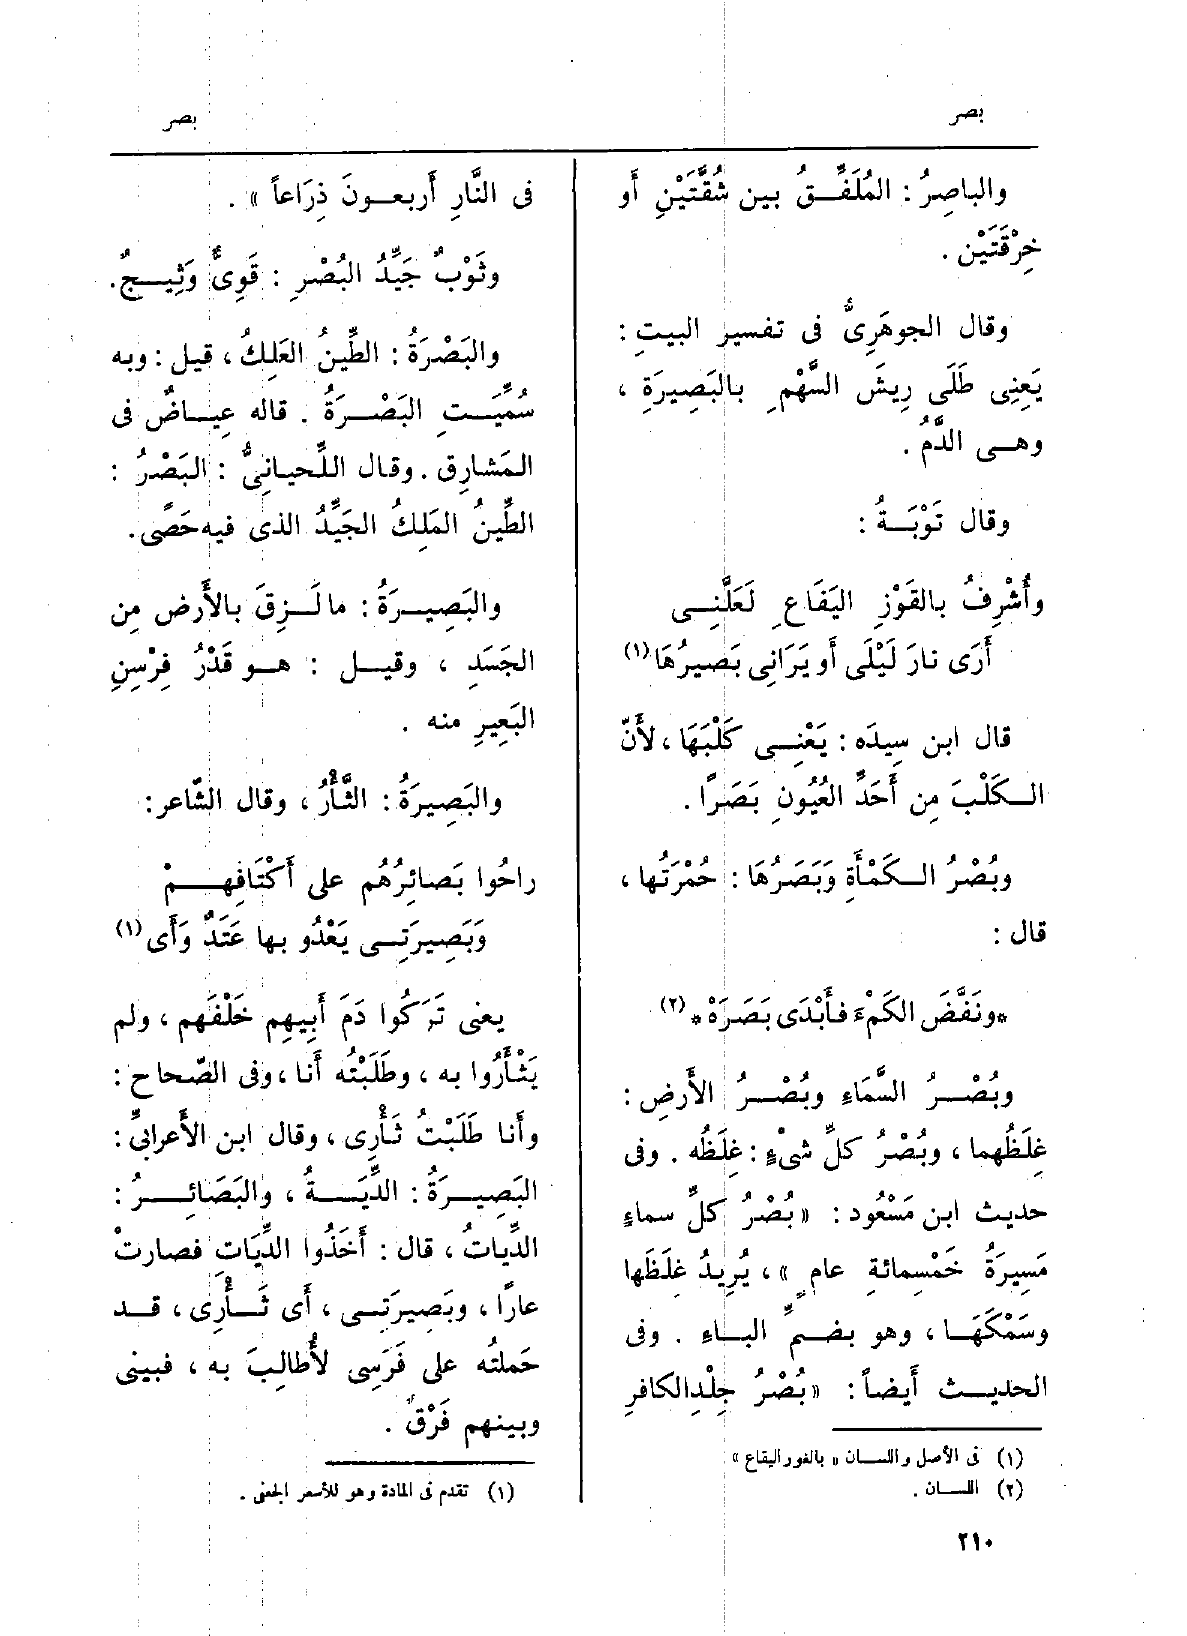 بصر
بصر
والباصِرُ : المُلَفِّقُ بين شُقَّتَيْنِ أَو
خِرْقَتَيْن .
وقال الجوهَرِىُّ فى تفسير البيتِ :
يَعنِى طَلَى رِيشَ السَّهْمِ بالبَصِيرَةِ ،
وهى الدَّمُ .
وقال تَوْبَةُ :
وأُشْرِفُ بالقَوْزِ اليَفَاعِ لَعَلَّنِى
أَرَى نارَ لَيْلَى أَو يَرَانِى بَصيرُهَا (١)
قال ابن سِيدَه : يَعْنِى كَلْبَهَا ، لأَنّ
الكَلْبَ مِن أَحَدِّ العُيُونِ بَصَرًا .
وبُصْرُ الكَمْأَةِ وَبَصَرُهَا : حُمْرَتُها ،
قال :
* ونَفَّضَ الكَمْءَ فأَبْدَى بَصَرَهْ * (٢)
وبُصْرُ السَّمَاءِ وبُصْرُ الأَرضِ :
غِلَظُهما ، وبُصْرُ كلِّ شىْءٍ : غِلَظُه . وفى
حديث ابن مَسْعُود : « بُصْرُ كلِّ سماءٍ
مَسِيرَةُ خَمْسِمائةِ عامٍ » ، يُرِيدُ غِلَظَها
وسَمْكَهَا ، وهو بضمِّ الباءِ . وفى
الحديث أَيضاً : « بُصْرُ جِلْدِ الكافرِ
(١) فى الأصل واللسان « بالغور اليقاع »
(٢) اللسان .
فى النَّارِ أَربعونَ ذِرَاعاً » .
وثَوْبٌ جَيِّدُ البُصْرِ : قَوِىٌّ وَثِيجٌ .
والبَصْرَةُ : الطِّينُ العَلِكُ ، قيل : وبه
سُمِّيَتِ البَصْرَةُ . قاله عِياضٌ فى
المَشارِق . وقال اللِّحيانِىُّ : البَصْرُ :
الطِّينُ العَلِكُ الجَيِّدُ الذى فيه حَصًى .
والبَصِيرَةُ : ما لَزِقَ بالأَرض مِن
الجَسَدِ ، وقيل : هو قَدْرُ فِرْسِنِ
البَعِيرِ منه .
والبَصِيرَةُ : الثَّأْرُ ، وقال الشّاعر :
راحُوا بَصائِرُهُم على أَكْتَافِهِمْ
وَبَصِيرَتِى يَعْدُو بها عَتَدٌ وَأَى (١)
يعنى تَرَكُوا دَمَ أَبِيهِم خَلْفَهم ، ولم
يَثْأَرُوا به ، وطَلَبْتُه أَنا ، وفى الصّحاح :
وأَنا طَلَبْتُ ثَأْرِى ، وقال ابن الأَعرابىِّ :
البَصِيرَةُ : الدِّيَةُ ، والبَصَائِرُ :
الدِّيَاتُ ، قال : أَخَذُوا الدِّيَاتِ فصارتْ
عارًا ، وبَصِيرَتِى ، أَى ثَأْرِى ، قد
حَملتُه على فَرَسِى لأُطالِبَ به ، فبينى
وبينهم فَرْقٌ .
(١) تقدم فى المادة وهو للأسعر الجعفى .
٢١٠